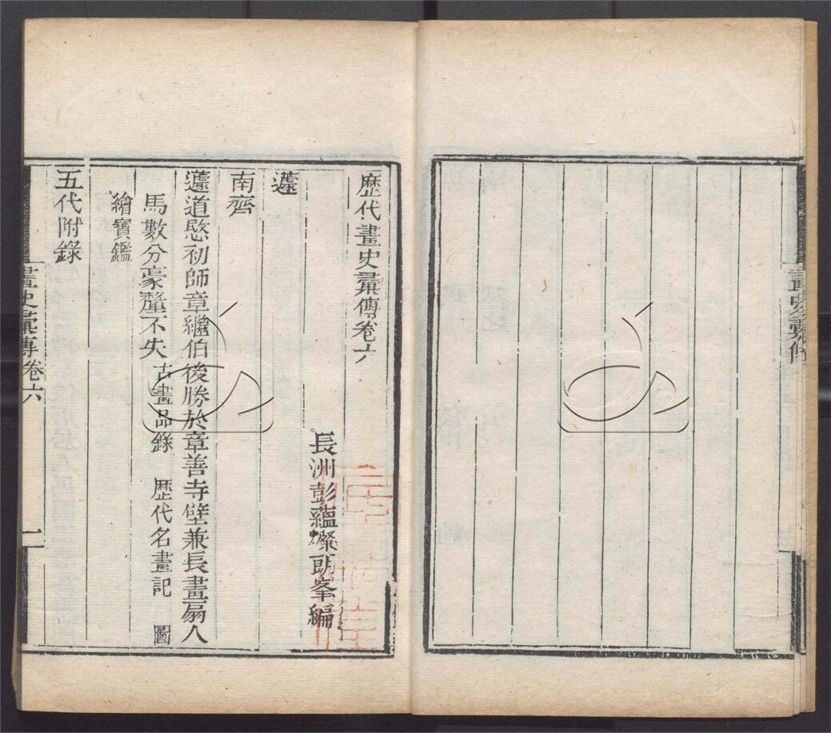 畫史彙傳
歷代畫史彙傳卷六
長洲彭蘊燦朗峯編
蘧
南齊
蘧道愍初師章繼伯後勝於章善寺壁兼長畫扇人
馬數分豪釐不失古畫品錄 歷代名畫記 圖
繪寶鑑
五代附錄
畫史彙傳卷六
一